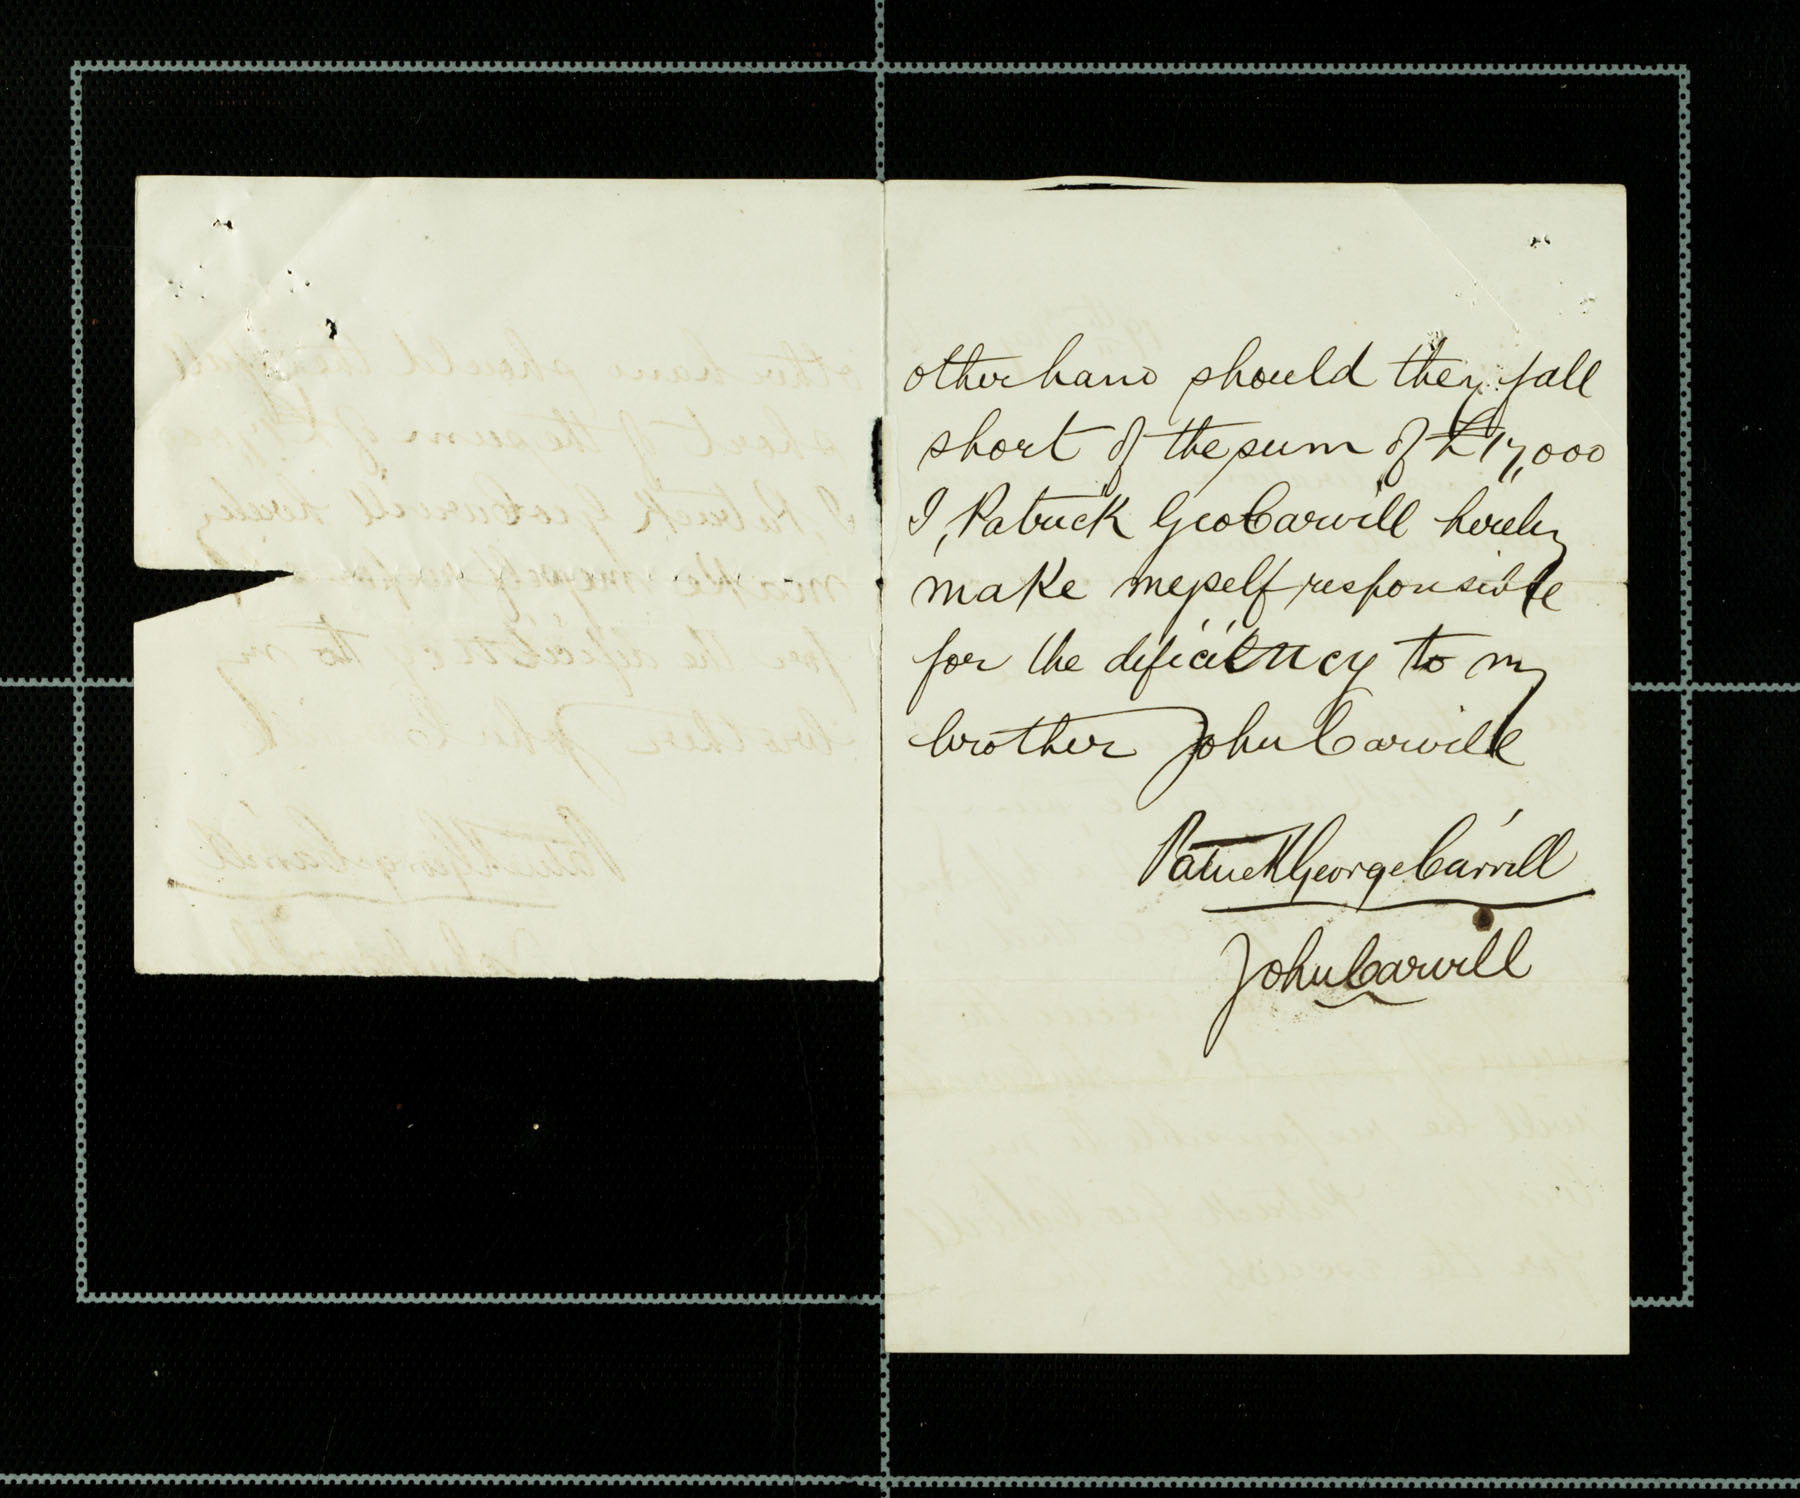 other hand should they fall
short of the sum of £17,000
I, Patrick Geo Carvill hereby
make myself responsible
for the deficiency to my
brother John Carvill
Patrick George Carvill
John Carvill